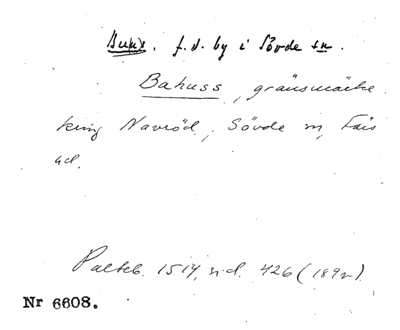 f. d. by i Sövde sn.
Bahuss, gränsmärke
kring Navröd, Sövde sn, Färs
hd.
Palteb. 1514, sid. 426 (189r).
Nr 6608.